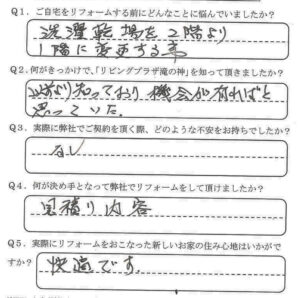 Q1. ご自宅をリフォームする前にどんなことに悩んでいましたか?
洗濯職場を2階より
1階に変更する事
Q2. 何がきっかけで、「リビングプラザ滝の神」を知って頂きましたか?
以前より知っており 機会が有ればと
思っていた。
Q3. 実際に弊社でご契約を頂く際、どのような不安をお持ちでしたか?
なし
Q4. 何が決め手となって弊社でリフォームをして頂けましたか?
見積り内容
Q5. 実際にリフォームをおこなった新しいお家の住み心地はいかがで
すか?
快適です。